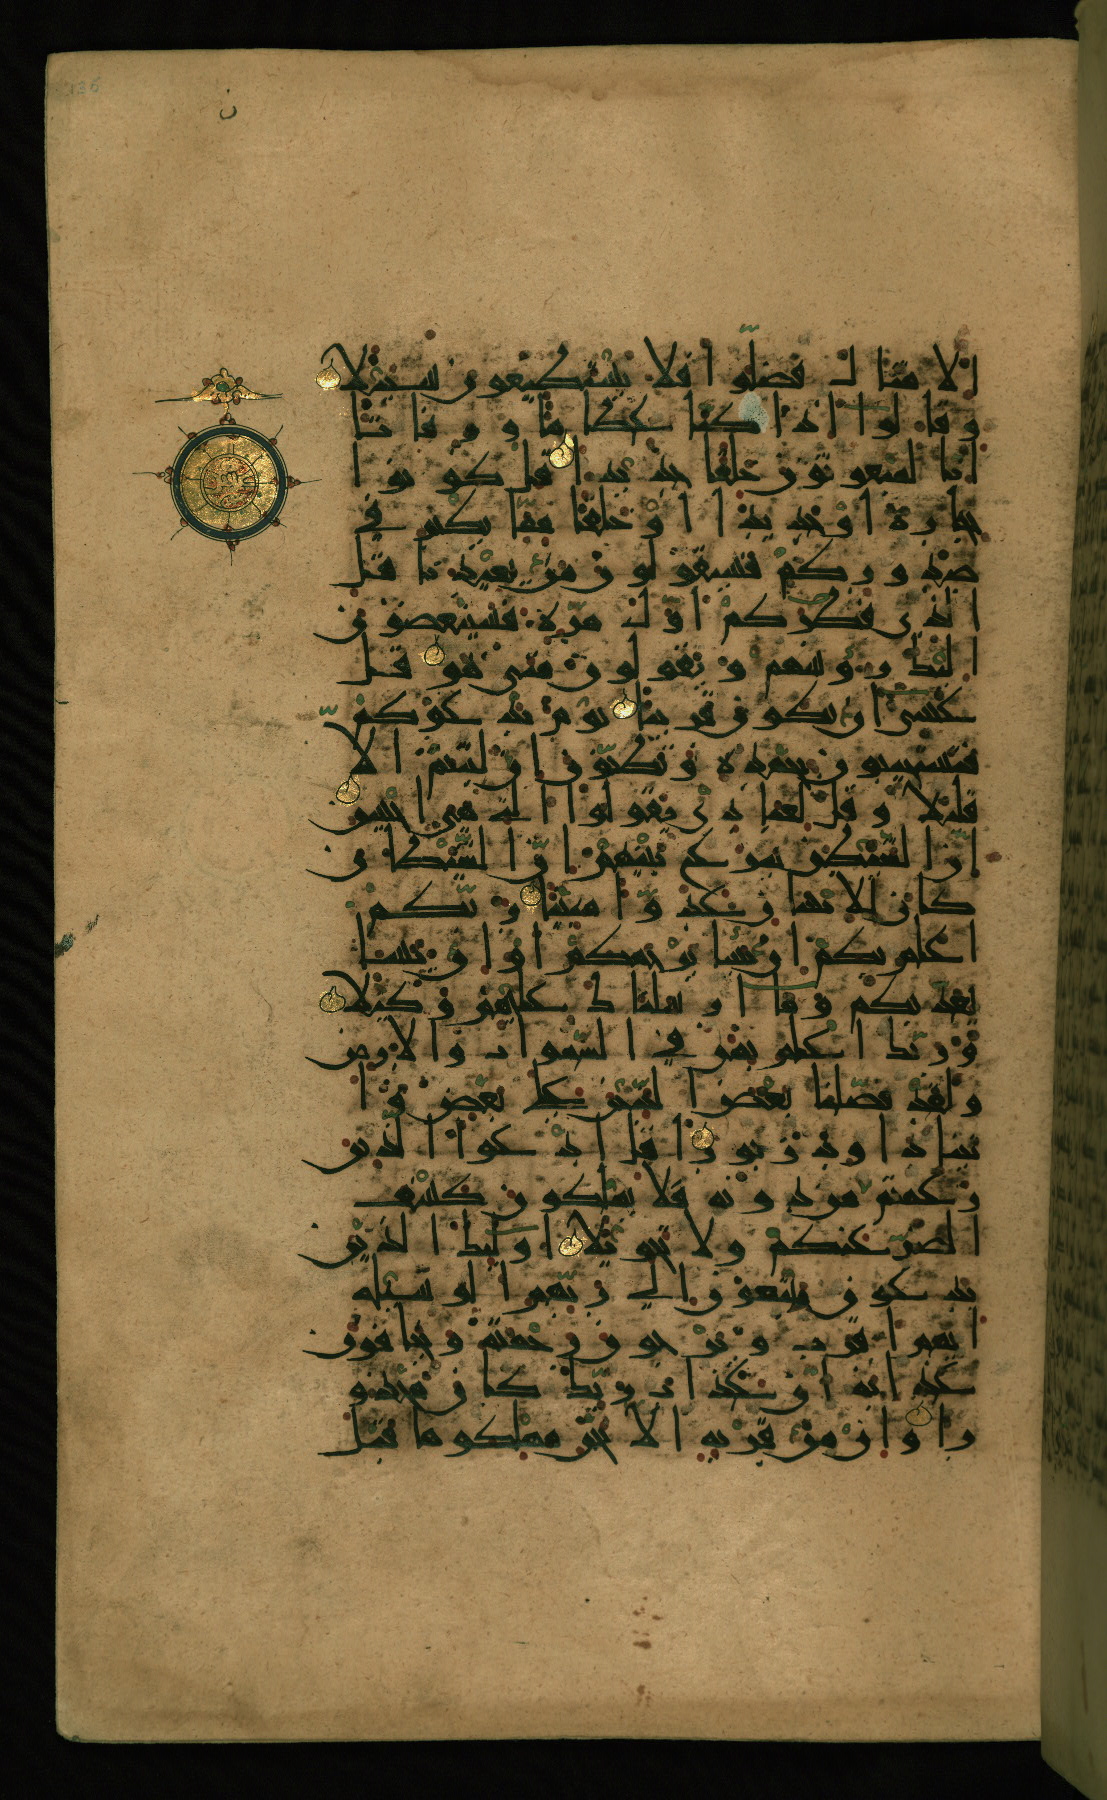 الامثال فضلوا فلا يستطيعون سبيلا
وقالوا اذا كنا عظاما ورفاتا
انا لمبعوثون خلقا جديدا قل كونوا
حجارة او حديدا او خلقا مما يكبر في
صدوركم فسيقولون من يعيدنا قل
الذي فطركم اول مرة فسينغضون
اليك رءوسهم ويقولون متى هو قل
عسى ان يكون قريبا يوم يدعوكم
فتستجيبون بحمده وتظنون ان لبثتم الا
قليلا وقل لعبادي يقولوا التي هي احسن
ان الشيطن ينزغ بينهم ان الشيطان
كان للانسان عدوا مبينا ربكم
اعلم بكم ان يشا يرحمكم او ان يشا
يعذبكم وما ارسلناك عليهم وكيلا
وربك اعلم بمن في السموات والارض
ولقد فضلنا بعض النبين على بعض وا
تينا داود زبورا قل ادعوا الذين
زعمتم من دونه فلا يملكون كشف
الضر عنكم ولا تحويلا اولئك الذين
يدعون يبتغون الى ربهم الوسيلة
ايهم اقرب ويرجون رحمته ويخافون
عذابه ان عذاب ربك كان محذو
را وان من قرية الا نحن مهلكوها قبل